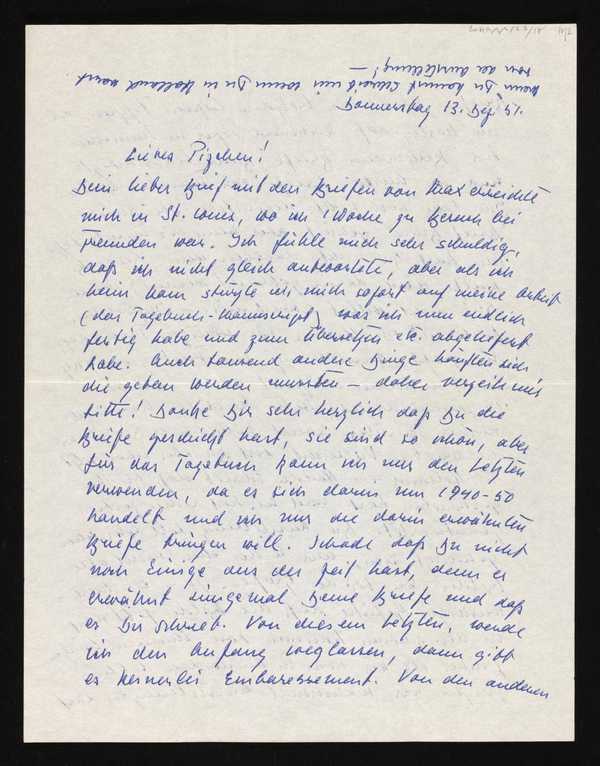 wenn Du kommst schreib mir wenn Du in Holland warst
von der Ausstellung! —
Donnerstag 13. Dez. 51.
Liebes Pizchen!
Dein lieber Brief mit den Briefen von Max erreichte
mich in St. Louis, wo ich 1 Woche zu Besuch bei
Freunden war. Ich fühle mich sehr schuldig,
daß ich nicht gleich antwortete, aber als ich
heim kam stürzte ich mich sofort auf meine Arbeit
(das Tagebuch-Manuscript) was ich nun endlich
fertig habe und zum Übersetzen etc. abgeliefert
habe. Auch tausend andere Dinge häuften sich
die getan werden mussten – daher verzeih mir
bitte! Danke Dir sehr herzlich daß Du die
Briefe geschickt hast, sie sind so schön, aber
für das Tagebuch kann ich nur den letzten
verwenden, da es sich darin um 1940-50
handelt und ich nur die darin erwähnten
Briefe bringen will. Schade daß Du nicht
noch Einige aus der Zeit hast, denn er
erwähnt einigemal Deine Briefe und daß
er Dir schrieb. Von diesem letzten, werde
ich den Anfang weglassen, dann gibt
es keinerlei Embaressement! Von den anderen